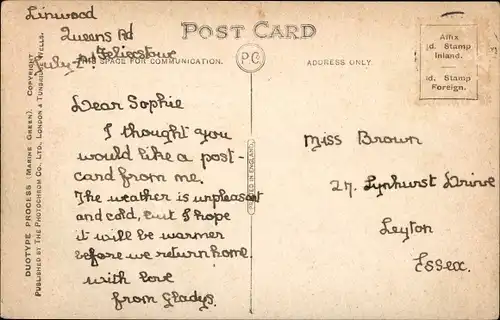 Linwood
Queens Rd
Felixstowe
July 2nd
POST CARD
THIS SPACE FOR COMMUNICATION.
P.C
ADDRESS ONLY.
Affix
½d. Stamp
Inland.
1d. Stamp
Foreign.
Dear Sophie
I thought you
would like a post-
card from me.
The weather is unpleasant
and cold, but I hope
it will be warmer
before we return home.
with love
from Gladys.
Miss Brown
27, Lynhurst Drive
Leyton
Essex.
PRINTED IN ENGLAND.
DUOTYPE PROCESS (MARINE GREEN). COPYRIGHT
PUBLISHED BY THE PHOTOCHROM CO., LTD., LONDON & TUNBRIDGE WELLS.